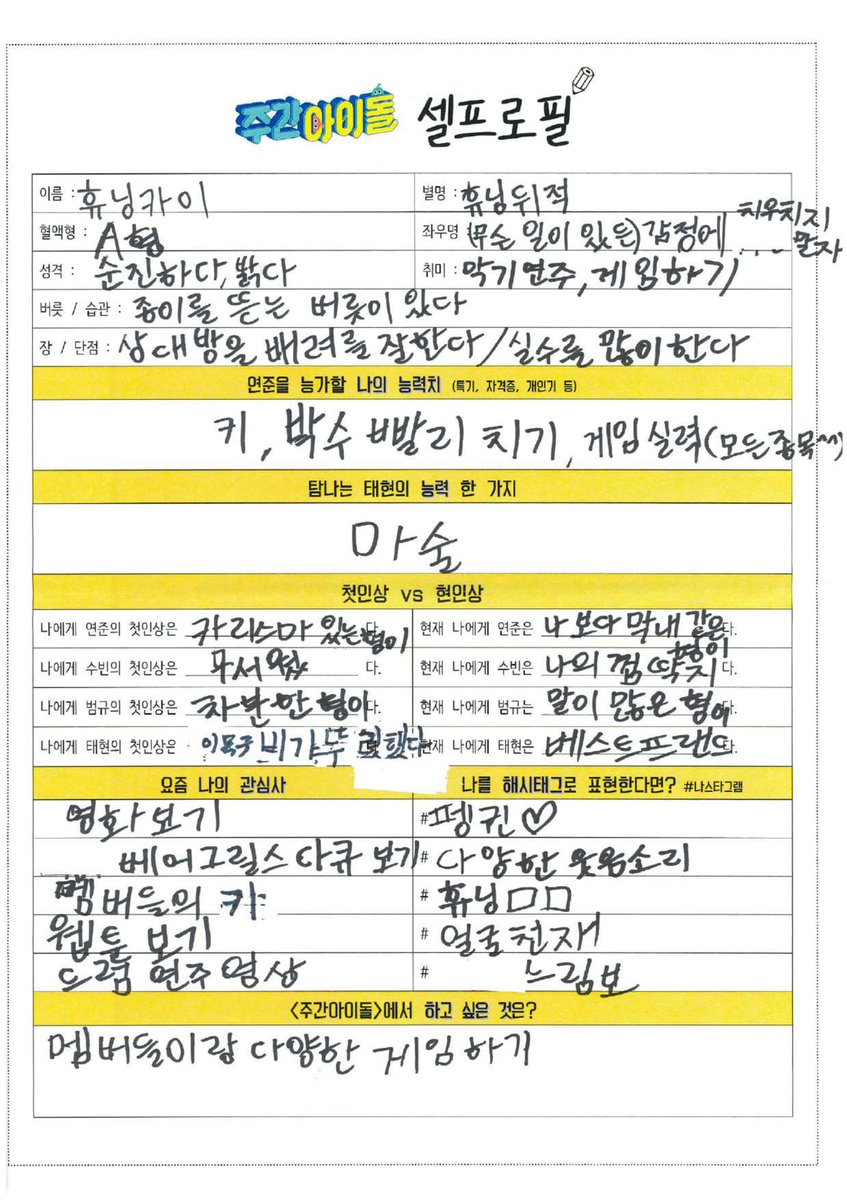 주간아이돌 셀프로필
이름 : 휴닝카이
별명 : 휴닝뒤적
혈액형 : A형
좌우명 : (무슨 일이 있든) 감정에 치우치지 말자
성격 : 순진하다, 밝다
취미 : 악기연주, 게임하기
버릇 / 습관 : 종이를 뜯는 버릇이 있다
장 / 단점 : 상대방을 배려를 잘한다 / 실수를 많이 한다
연준을 능가할 나의 능력치 (특기, 자격증, 개인기 등)
키, 박수 빨리 치기, 게임실력(모든종목^^)
탐나는 태현의 능력 한 가지
마술
첫인상 vs 현인상
나에게 연준의 첫인상은 카리스마 있는 형이다.
현재 나에게 연준은 나보다 막내 같은 형이다.
나에게 수빈의 첫인상은 무서웠다.
현재 나에게 수빈은 나의 껌딱지다.
나에게 범규의 첫인상은 차분한 형이다.
현재 나에게 범규는 말이 많은 형이다.
나에게 태현의 첫인상은 이목구비가 뚜렷했다
현재 나에게 태현은 베스트프렌드다.
요즘 나의 관심사
나를 해시태그로 표현한다면? #나스타그램
영화보기
#펭귄♡
베어그릴스 다큐 보기
# 다양한 웃음소리
멤버들의 키
# 휴닝□□
웹툰 보기
# 얼굴천재
드럼 연주 영상
# 느림보
<주간아이돌>에서 하고 싶은 것은?
멤버들이랑 다양한 게임하기